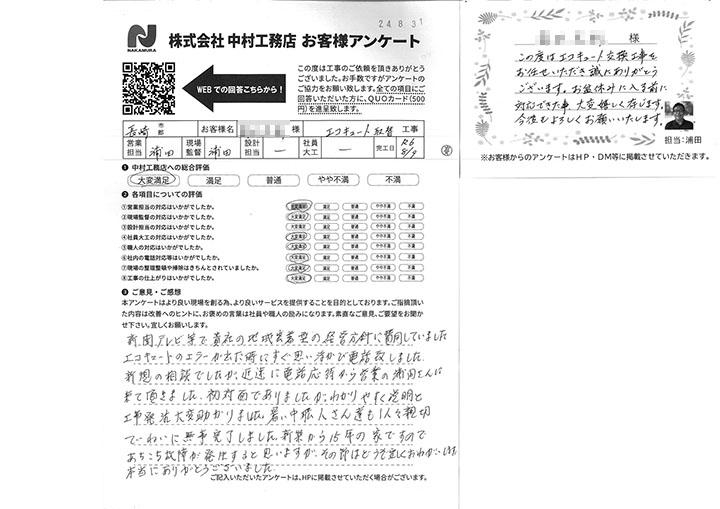 24.8.31
NAKAMURA
株式会社 中村工務店 お客様アンケート
WEB での回答こちらから！
この度は工事のご依頼を頂きありがとう
ございました。お手数ですがアンケートの
ご協力をお願い致します。全ての項目にご
回答いただいた方に、QUOカード(500
円)を進呈致します。
長崎 市 郡 お客様名 様 エコキュート取替 工事
営業担当 浦田 現場監督 浦田 設計担当 ー 社員大工 ー 完工日 R6 8/9
❶ 中村工務店への総合評価
大変満足 満足 普通 やや不満 不満
❷ 各項目についての評価
①営業担当の対応はいかがでしたか。 大変満足 満足 普通 やや不満 不満
②現場監督の対応はいかがでしたか。 大変満足 満足 普通 やや不満 不満
③設計担当の対応はいかがでしたか。 大変満足 満足 普通 やや不満 不満
④社員大工の対応はいかがでしたか。 大変満足 満足 普通 やや不満 不満
⑤職人の対応はいかがでしたか。 大変満足 満足 普通 やや不満 不満
⑥社内の電話対応等はいかがでしたか。 大変満足 満足 普通 やや不満 不満
⑦現場の整理整頓や掃除はきちんとされていましたか。 大変満足 満足 普通 やや不満 不満
⑧工事の仕上がりはいかがでしたか。 大変満足 満足 普通 やや不満 不満
❸ ご意見・ご感想
本アンケートはより良い現場を創る為、より良いサービスを提供することを目的としております。ご指摘頂い
た内容は改善へのヒントに、お褒めの言葉は社員や職人の励みになります。素直なご意見、ご要望をお聞か
せ下さい。宜しくお願いします。
新聞テレビ等で貴社の地域密着型の経営方針に賛同していました
エコキュートのエラーが出た時にすぐ思い浮かび電話致しました。
新規の相談でしたが、迅速に電話応対から営業の浦田さんに
来て頂きました。初対面でありましたが、わかりやすく説明と
工事発注大変助かりました。暑い中職人さん達も1人々親切
てーねいに無事完了しました。新築から15年の家ですので
あちこち故障が発生すると思いますが、その節はどうぞ宜しくおねがいします
本当にありがとうございました
ご記入いただいたアンケートは、HPに掲載させていただく場合がございます。
様
この度はエコキュート交換工事を
お任せいただき誠にありがとう
ございます。お盆休みに入る前に
対応できた事、大変嬉しく存じます。
今後もよろしくお願いいたします。
担当：浦田
※お客様からのアンケートはＨＰ・ＤＭ等に掲載させていただきます。